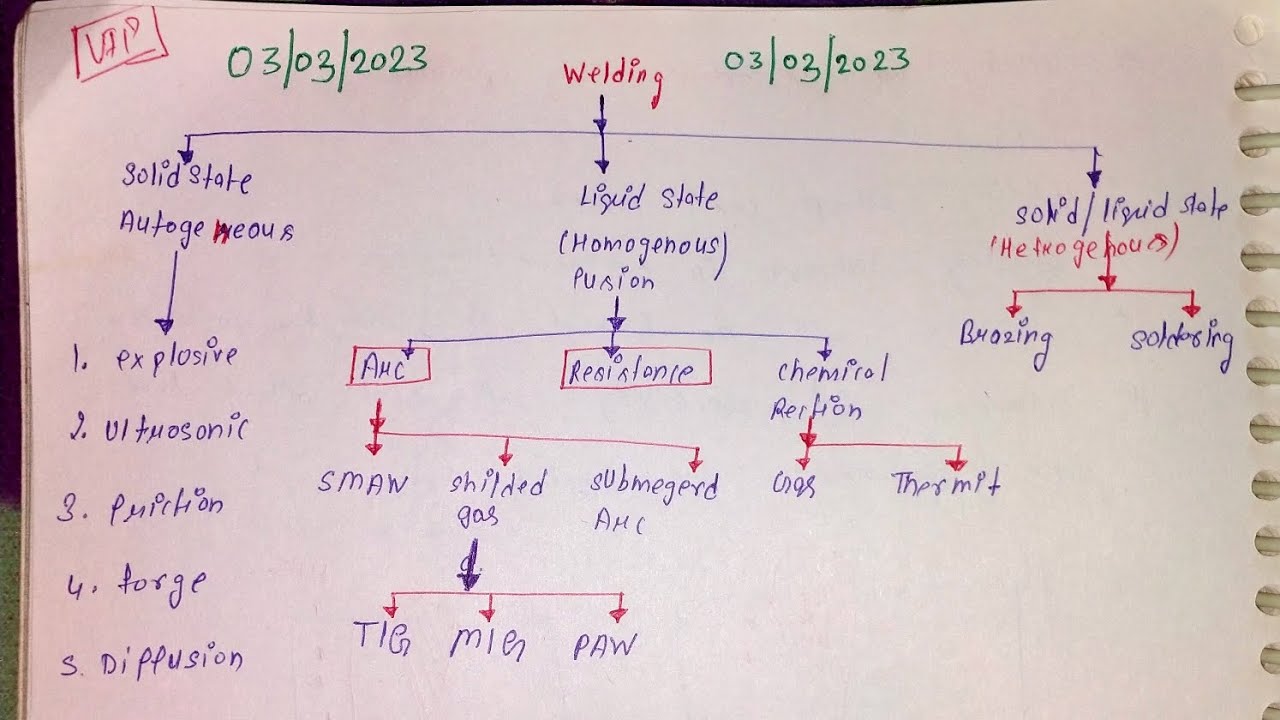 VAP
03/03/2023
Welding
03/03/2023
Solid State
Autogeneous
Liquid State
(Homogenous)
Fusion
Solid/liquid State
(Hetrogenous)
Brazing
Soldering
Arc
Resistance
Chemical
Rection
1. explosive
2. Ultrosonic
3. friction
4. forge
5. Diffusion
SMAW
Shilded
gas
Submegerd
Arc
Gas
Thermit
TIG
MIG
PAW